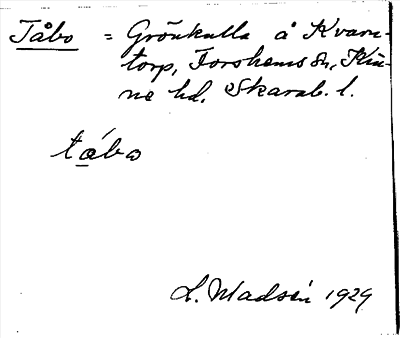 Tåbo = Grönkulla å Kvarn-
torp, Forshems sn, Kin-
ne hd. Skarab. l.
tåbo
L. Madsén 1929